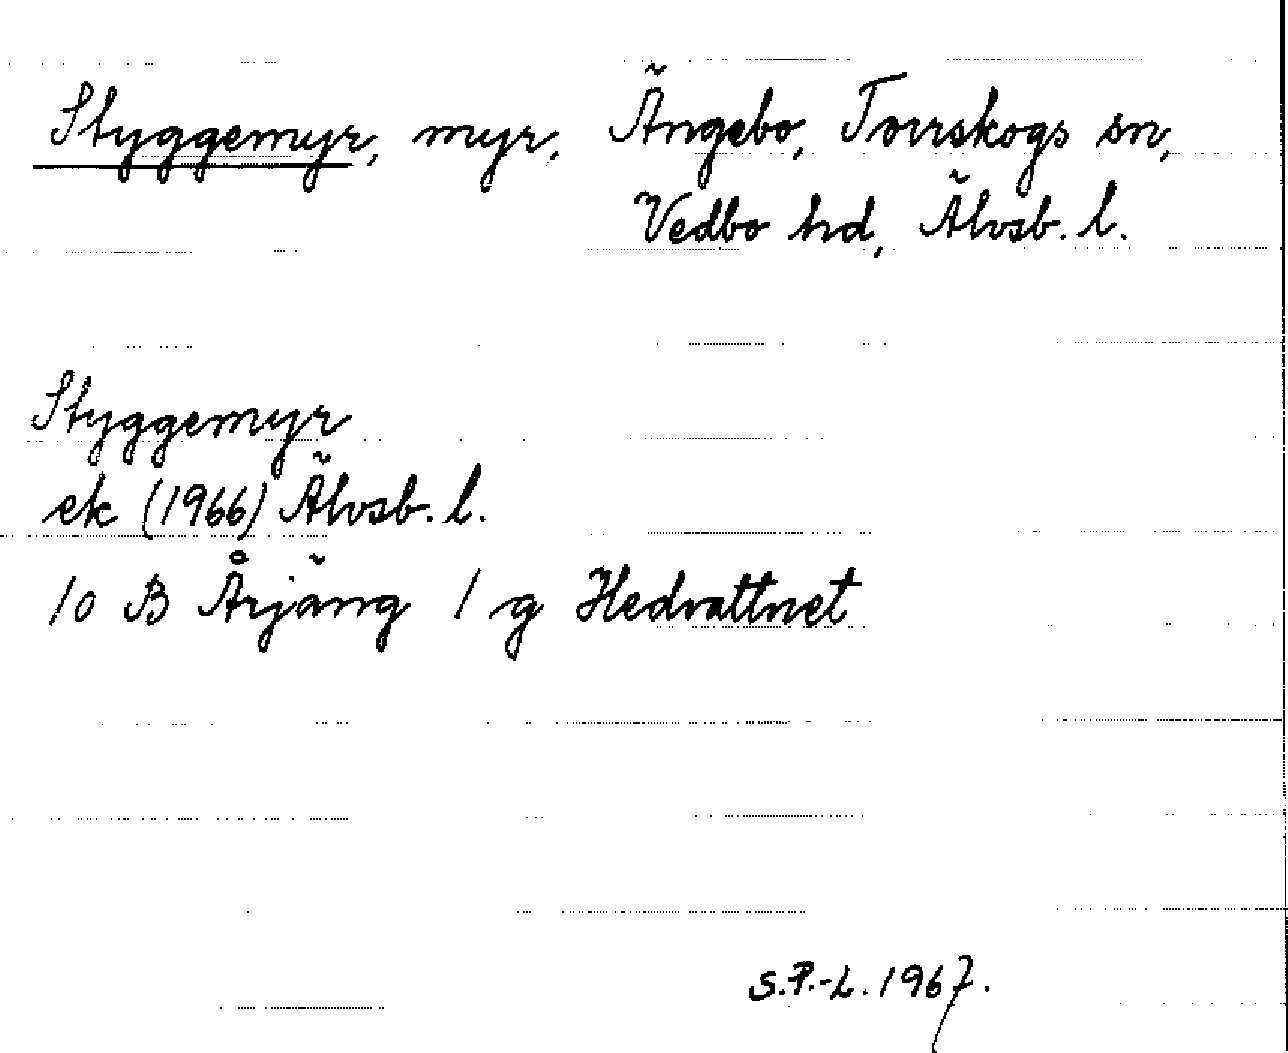 Styggemyr, myr, Ängebo, Torrskogs sn,
Vedbo hd, Älvsb. l.
Styggemyr
ek (1966) Älvsb. l.
10 B Årjäng 1 g Hedvattnet
S.P.-L. 1967.